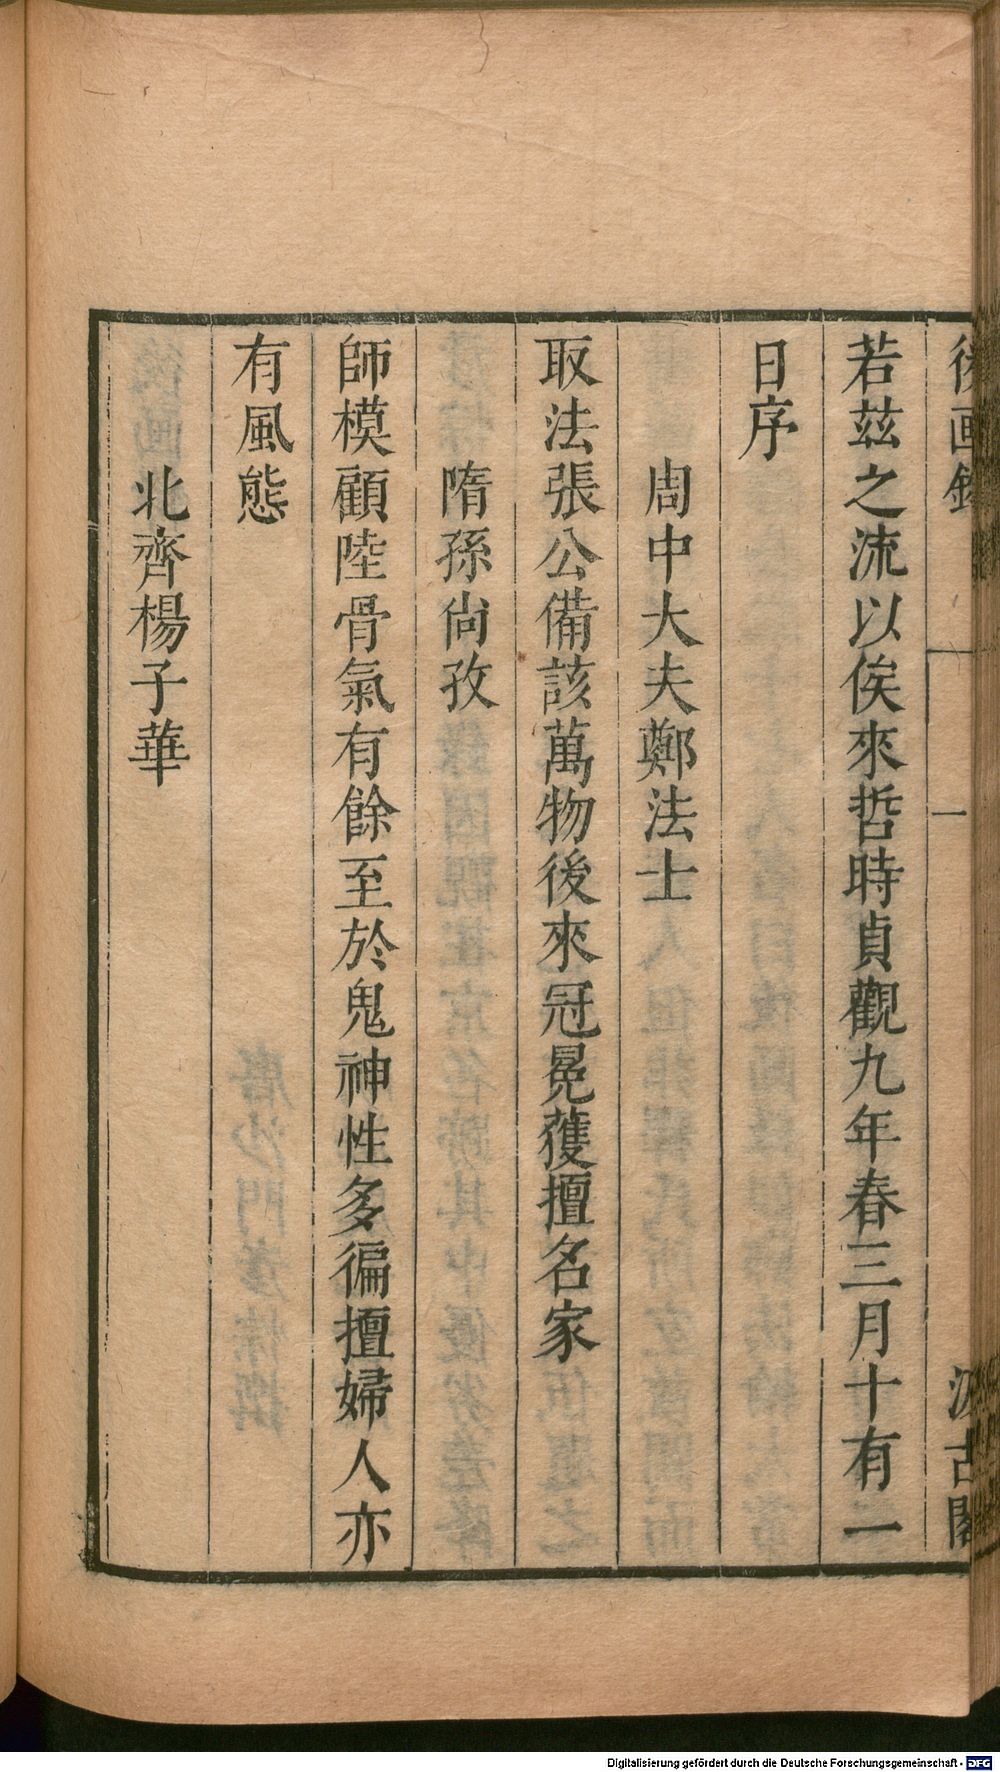 後画錄 一 汲古閣
若茲之流以俟來哲時貞觀九年春三月十有一
日序
周中大夫鄭法士
取法張公備該萬物後來冠冕獲擅名家
隋孫尚孜
師模顧陸骨氣有餘至於鬼神性多徧擅婦人亦
有風態
北齊楊子華
Digitalisierung gefördert durch die Deutsche Forschungsgemeinschaft - DFG